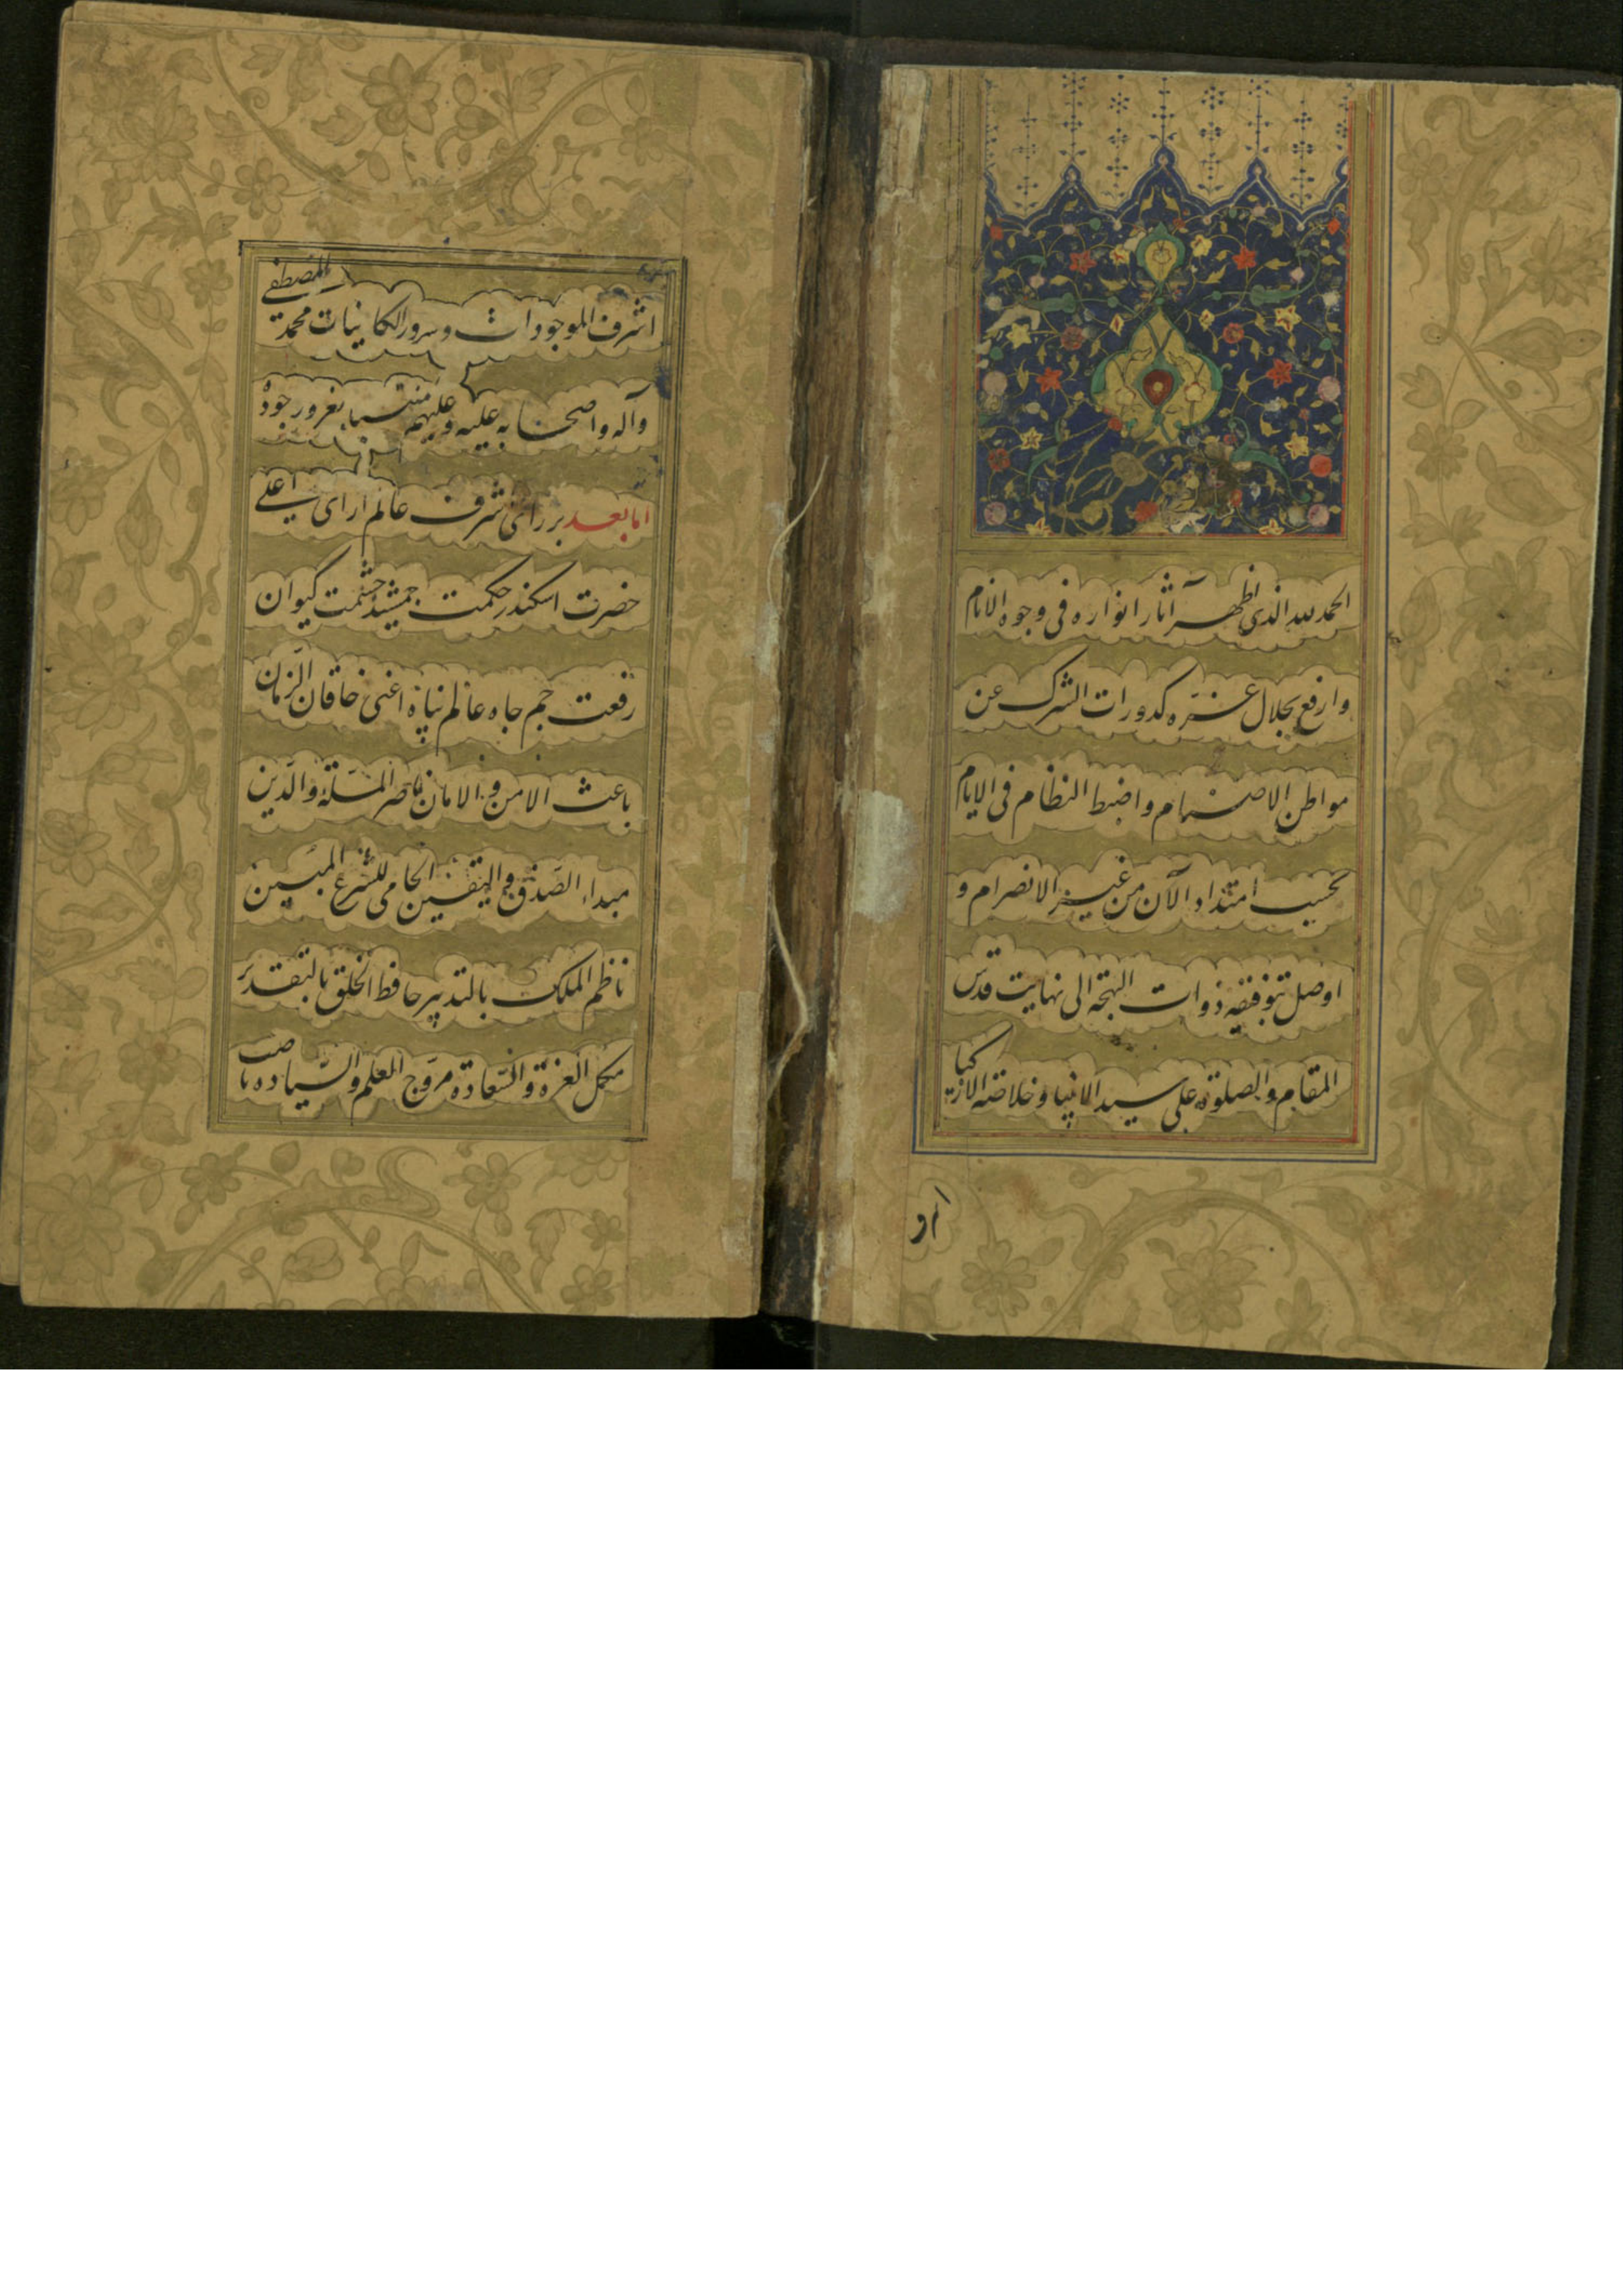 الحمد لله الذی اظهر آثار انواره فی وجوه الانام
وارفع بجلال عزه کدورات الشرک عن
مواطن الاصنام واضبط النظام فی الایام
بحسب امتداد الآن من غیر الانصرام و
اوصل بتوفیقه ذوات البهجة الی نهایت قدس
المقام والصلوة علی سید الانبیا و خلاصة الازکیا
اشرف
اشرف الموجودات و سرور الکاینات محمد المصطفی
وآله واصحابه علیه وعلیهم
اما بعد بر رای شرف عالم ارای اعلی
حضرت اسکندر حکمت جمشید حشمت کیوان
رفعت جم جاه عالم پناه اعنی خاقان الزمان
باعث الامن و الامان ناصر الملة والدین
مبداء الصدق والیقین الحامی للشرع المبین
ناظم الملک بالتدبیر حافظ الخلق بالتقدیر
مکمل العزة والسعادة مروج العلم والسیاده ناصب